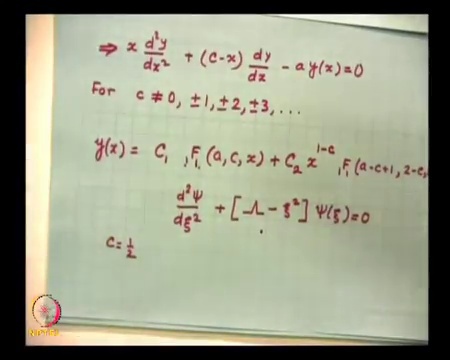 ⇒ x d²y/dx² + (c-x) dy/dx - a y(x) = 0
For c ≠ 0, ±1, ±2, ±3, ...
y(x) = C₁ ₁F₁(a, c, x) + C₂ x^{1-c} ₁F₁(a-c+1, 2-c,
d²Ψ/dξ² + [Λ - ξ²] Ψ(ξ) = 0
c = 1/2
NPTEL